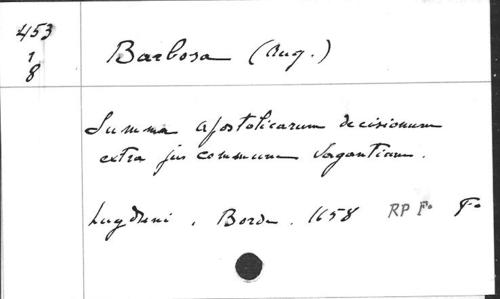 453
1
8
Barbosa (Aug.)
Summa apostolicarum decisionum
extra jus commune vagantium.
Lugduni, Borde. 1658 RP F° F°